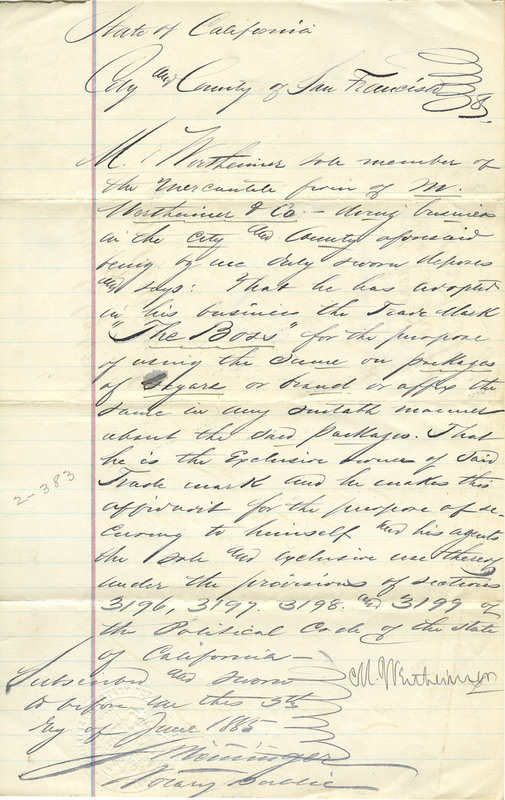 State of California
City and County of San Francisco ss
M. Wertheimer sole member of
the mercantile firm of M.
Wertheimer & Co. - doing business
in the City and County aforesaid
being by me duly sworn deposes
and says: That he has adopted
in his business the Trade Mark
"The Boss" for the purpose
of using the same on packages
of Segars or brand or affix the
same in any suitable manner
about the said packages. That
he is the Exclusive owner of said
Trade mark and he makes this
2-383
affidavit for the purpose of se-
curing to himself and his agents
the sole and exclusive use thereof
under the provisions of sections
3196, 3197. 3198. and 3199 of
the Political Code of the State
of California -
Subscribed and sworn
M. Wertheimer
to before me this 5th
day of June 1885
Notary Public